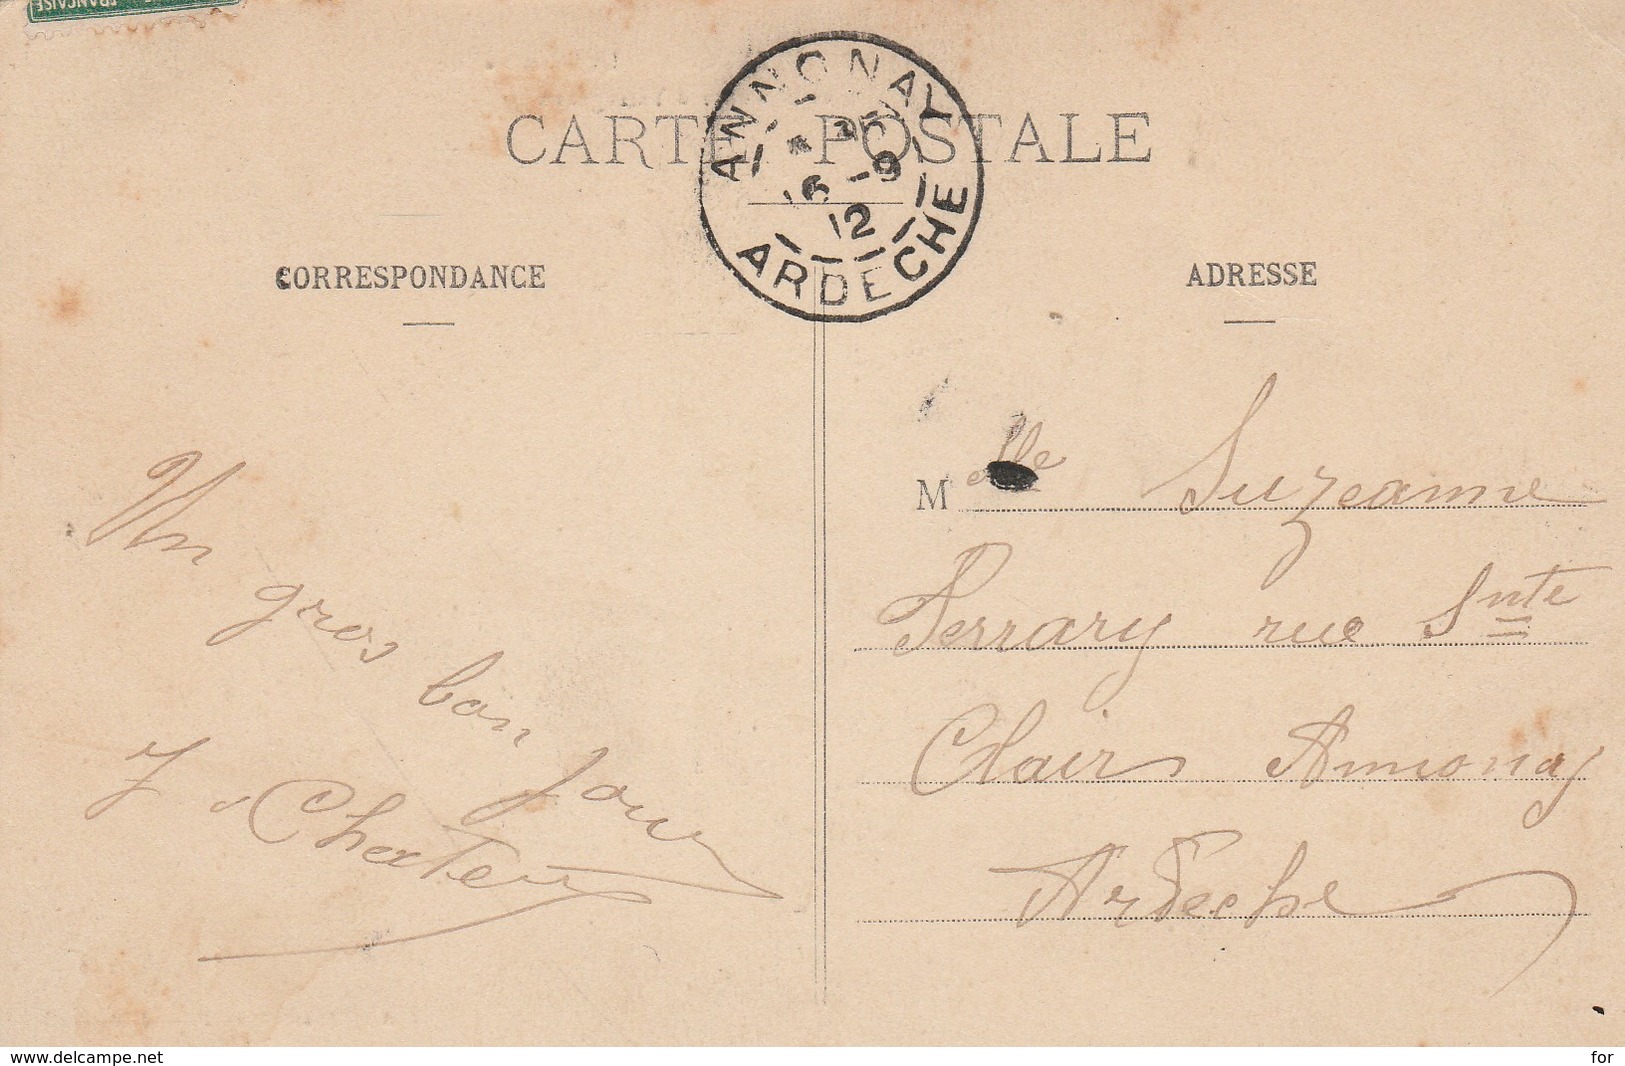 FRANÇAISE
CARTE POSTALE
ANNONAY
16 -9
12
ARDECHE
CORRESPONDANCE
ADRESSE
Un
gros
bon
jour
J Chater
Melle Suzanne
Perrary rue Snte
Clair Annonay
Ardeche
www.delcampe.net
for